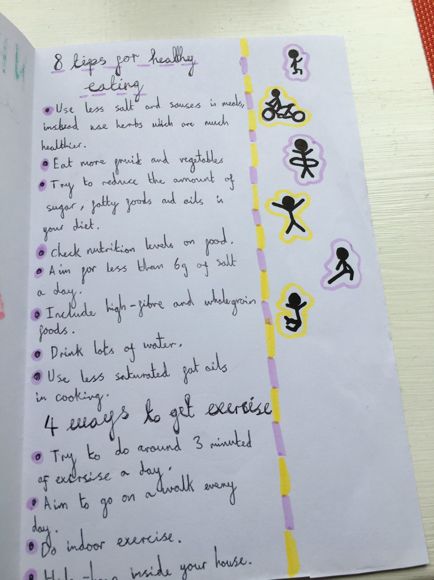 8 tips for healthy
eating
Use less salt and sauces in meals,
instead use herbs which are much
healthier.
Eat more fruit and vegetables
Try to reduce the amount of
sugar, fatty foods and oils in
your diet.
Check nutrition levels on food.
Aim for less than 6g of salt
a day.
Include high-fibre and wholegrain
foods.
Drink lots of water.
Use less saturated fat oils
in cooking.
4 ways to get exercise
Try to do around 3 minutes
of exercise a day.
Aim to go on a walk every
day.
Do indoor exercise.
inside your house.